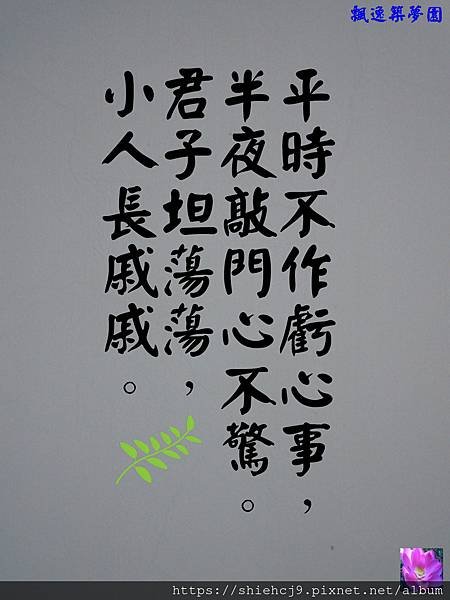 飄逸築夢園
平時不作虧心事，
半夜敲門心不驚。
君子坦蕩蕩，
小人長戚戚。
https://shiehcj9.pixnet.net/album